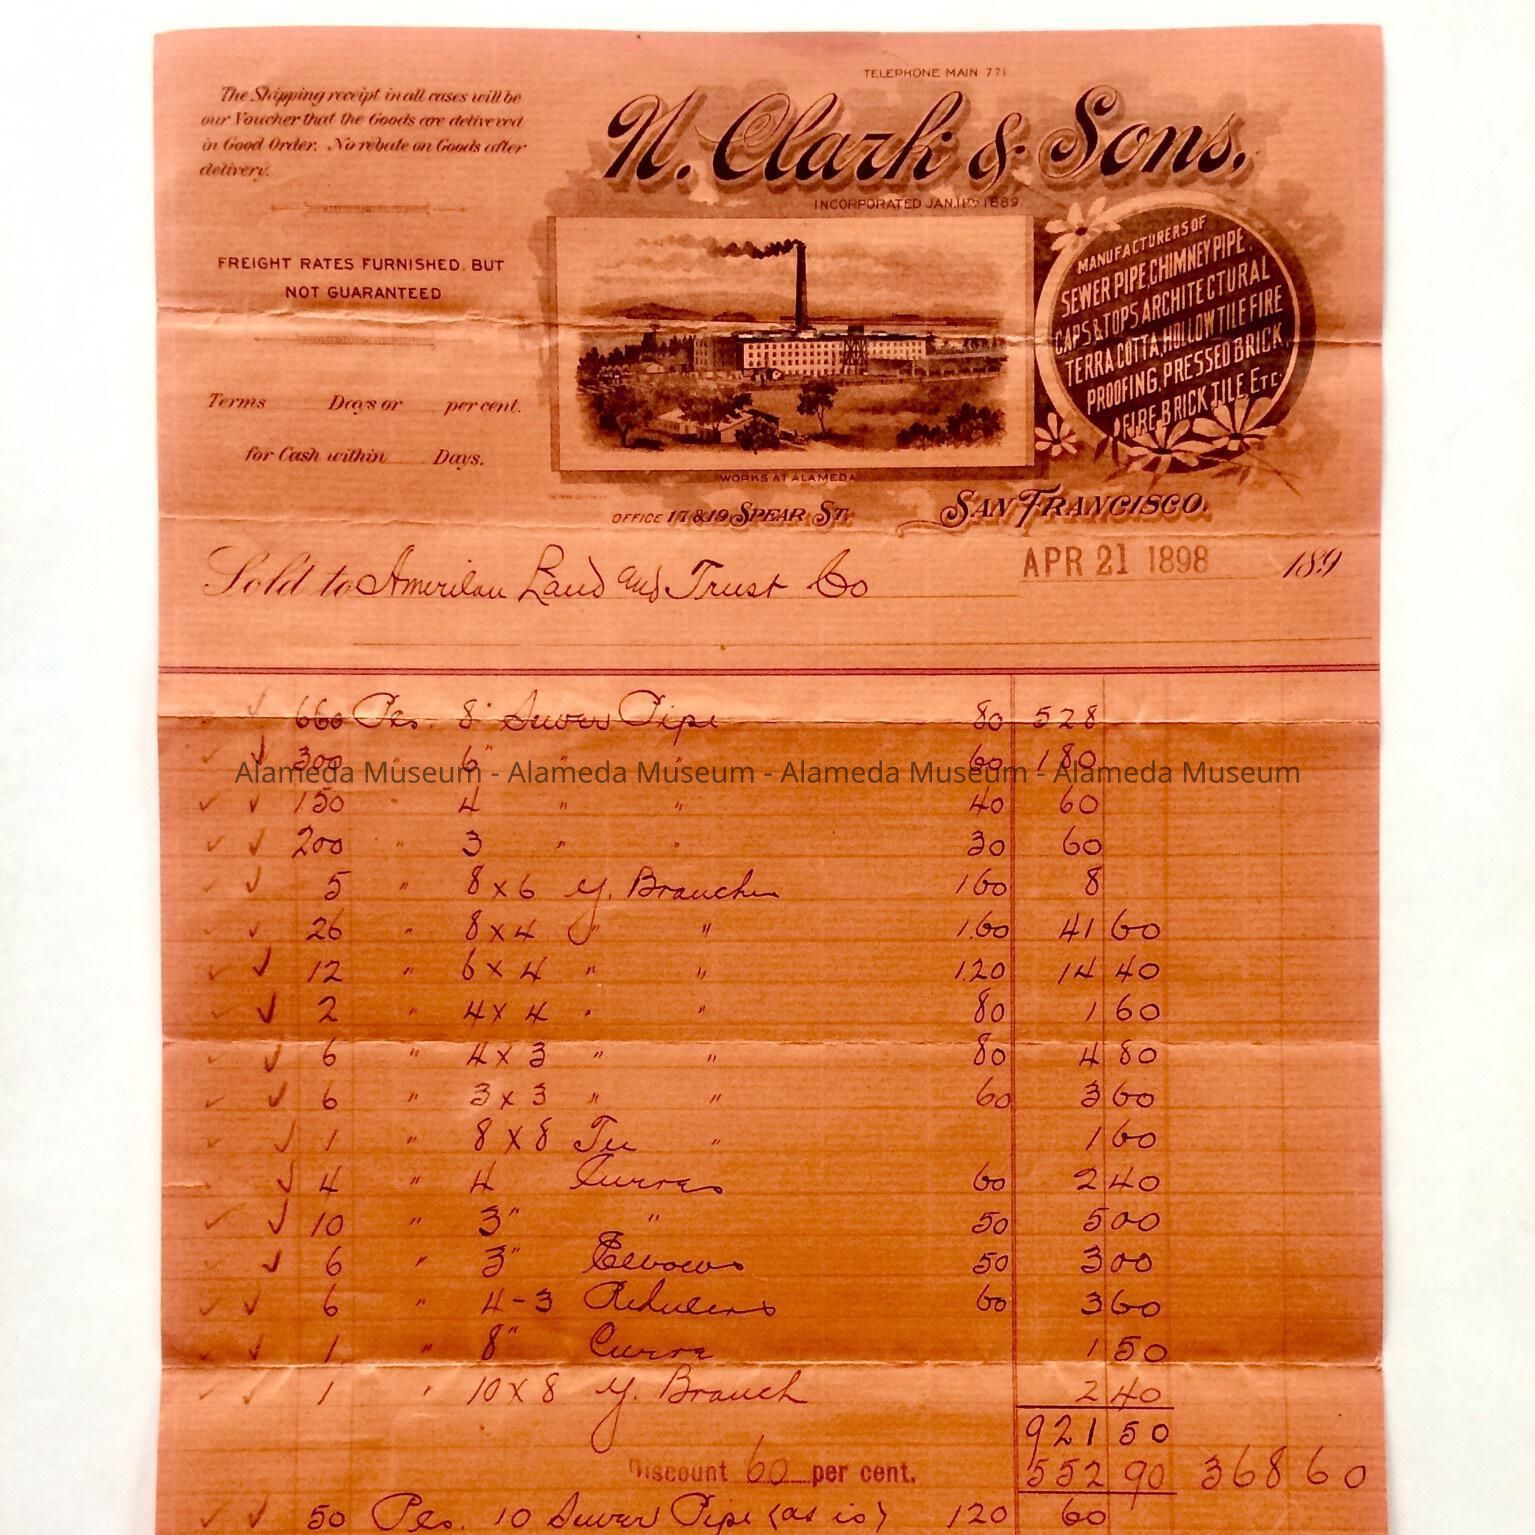 TELEPHONE MAIN 771.
The Shipping receipt in all cases will be
our Voucher that the Goods are delivered
in Good Order. No rebate on Goods after
delivery.
N. Clark & Sons.
INCORPORATED JAN. 11TH 1889.
FREIGHT RATES FURNISHED, BUT
NOT GUARANTEED
MANUFACTURERS OF
SEWER PIPE, CHIMNEY PIPE,
CAPS & TOPS, ARCHITECTURAL
TERRA COTTA, HOLLOW TILE FIRE
PROOFING, PRESSED BRICK,
FIRE BRICK, TILE, ETC.
Terms Days or per cent.
for Cash within Days.
WORKS AT ALAMEDA
OFFICE 17 & 19 SPEAR ST.
SAN FRANCISCO.
APR 21 1898 189
Sold to American Land and Trust Co
660 Pcs. 8" Sewer Pipe 80 528
300 6" " " 60 180
Alameda Museum - Alameda Museum - Alameda Museum - Alameda Museum
150 " 4 " " 40 60
200 " 3 " " 30 60
5 " 8 x 6 Y. Branches 160 8
26 " 8 x 4 " " 1.60 41 60
12 " 6 x 4 " " 1.20 14 40
2 " 4 x 4 " " 80 1 60
6 " 4 x 3 " " 80 4 80
6 " 3 x 3 " " 60 3 60
1 " 8 x 8 Tee " 1 60
4 " 4 Curves 60 2 40
10 " 3" " 50 5 00
6 " 3" Elbows 50 3 00
6 " 4-3 Reducers 60 3 60
1 " 8" Curve 1 50
1 " 10 x 8 Y. Branch 2 40
921 50
Discount 60 per cent. 552 90 368 60
50 Pcs. 10 Sewer Pipe (as is) 120 60